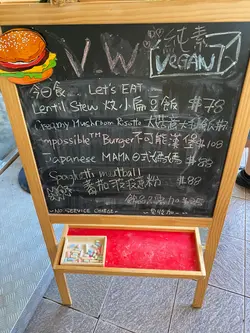 VW
純素
VEGAN
今日食... Let's EAT
Lentil Stew 炆小扁豆飯 $78
Creamy Mushroom Risotto
Impossible™ Burger 不可能漢堡 $108
Japanese MAMA 日式媽媽 $88
Spaghetti meatball
番茄 粉 $88
-NO SERVICE CHARGE-